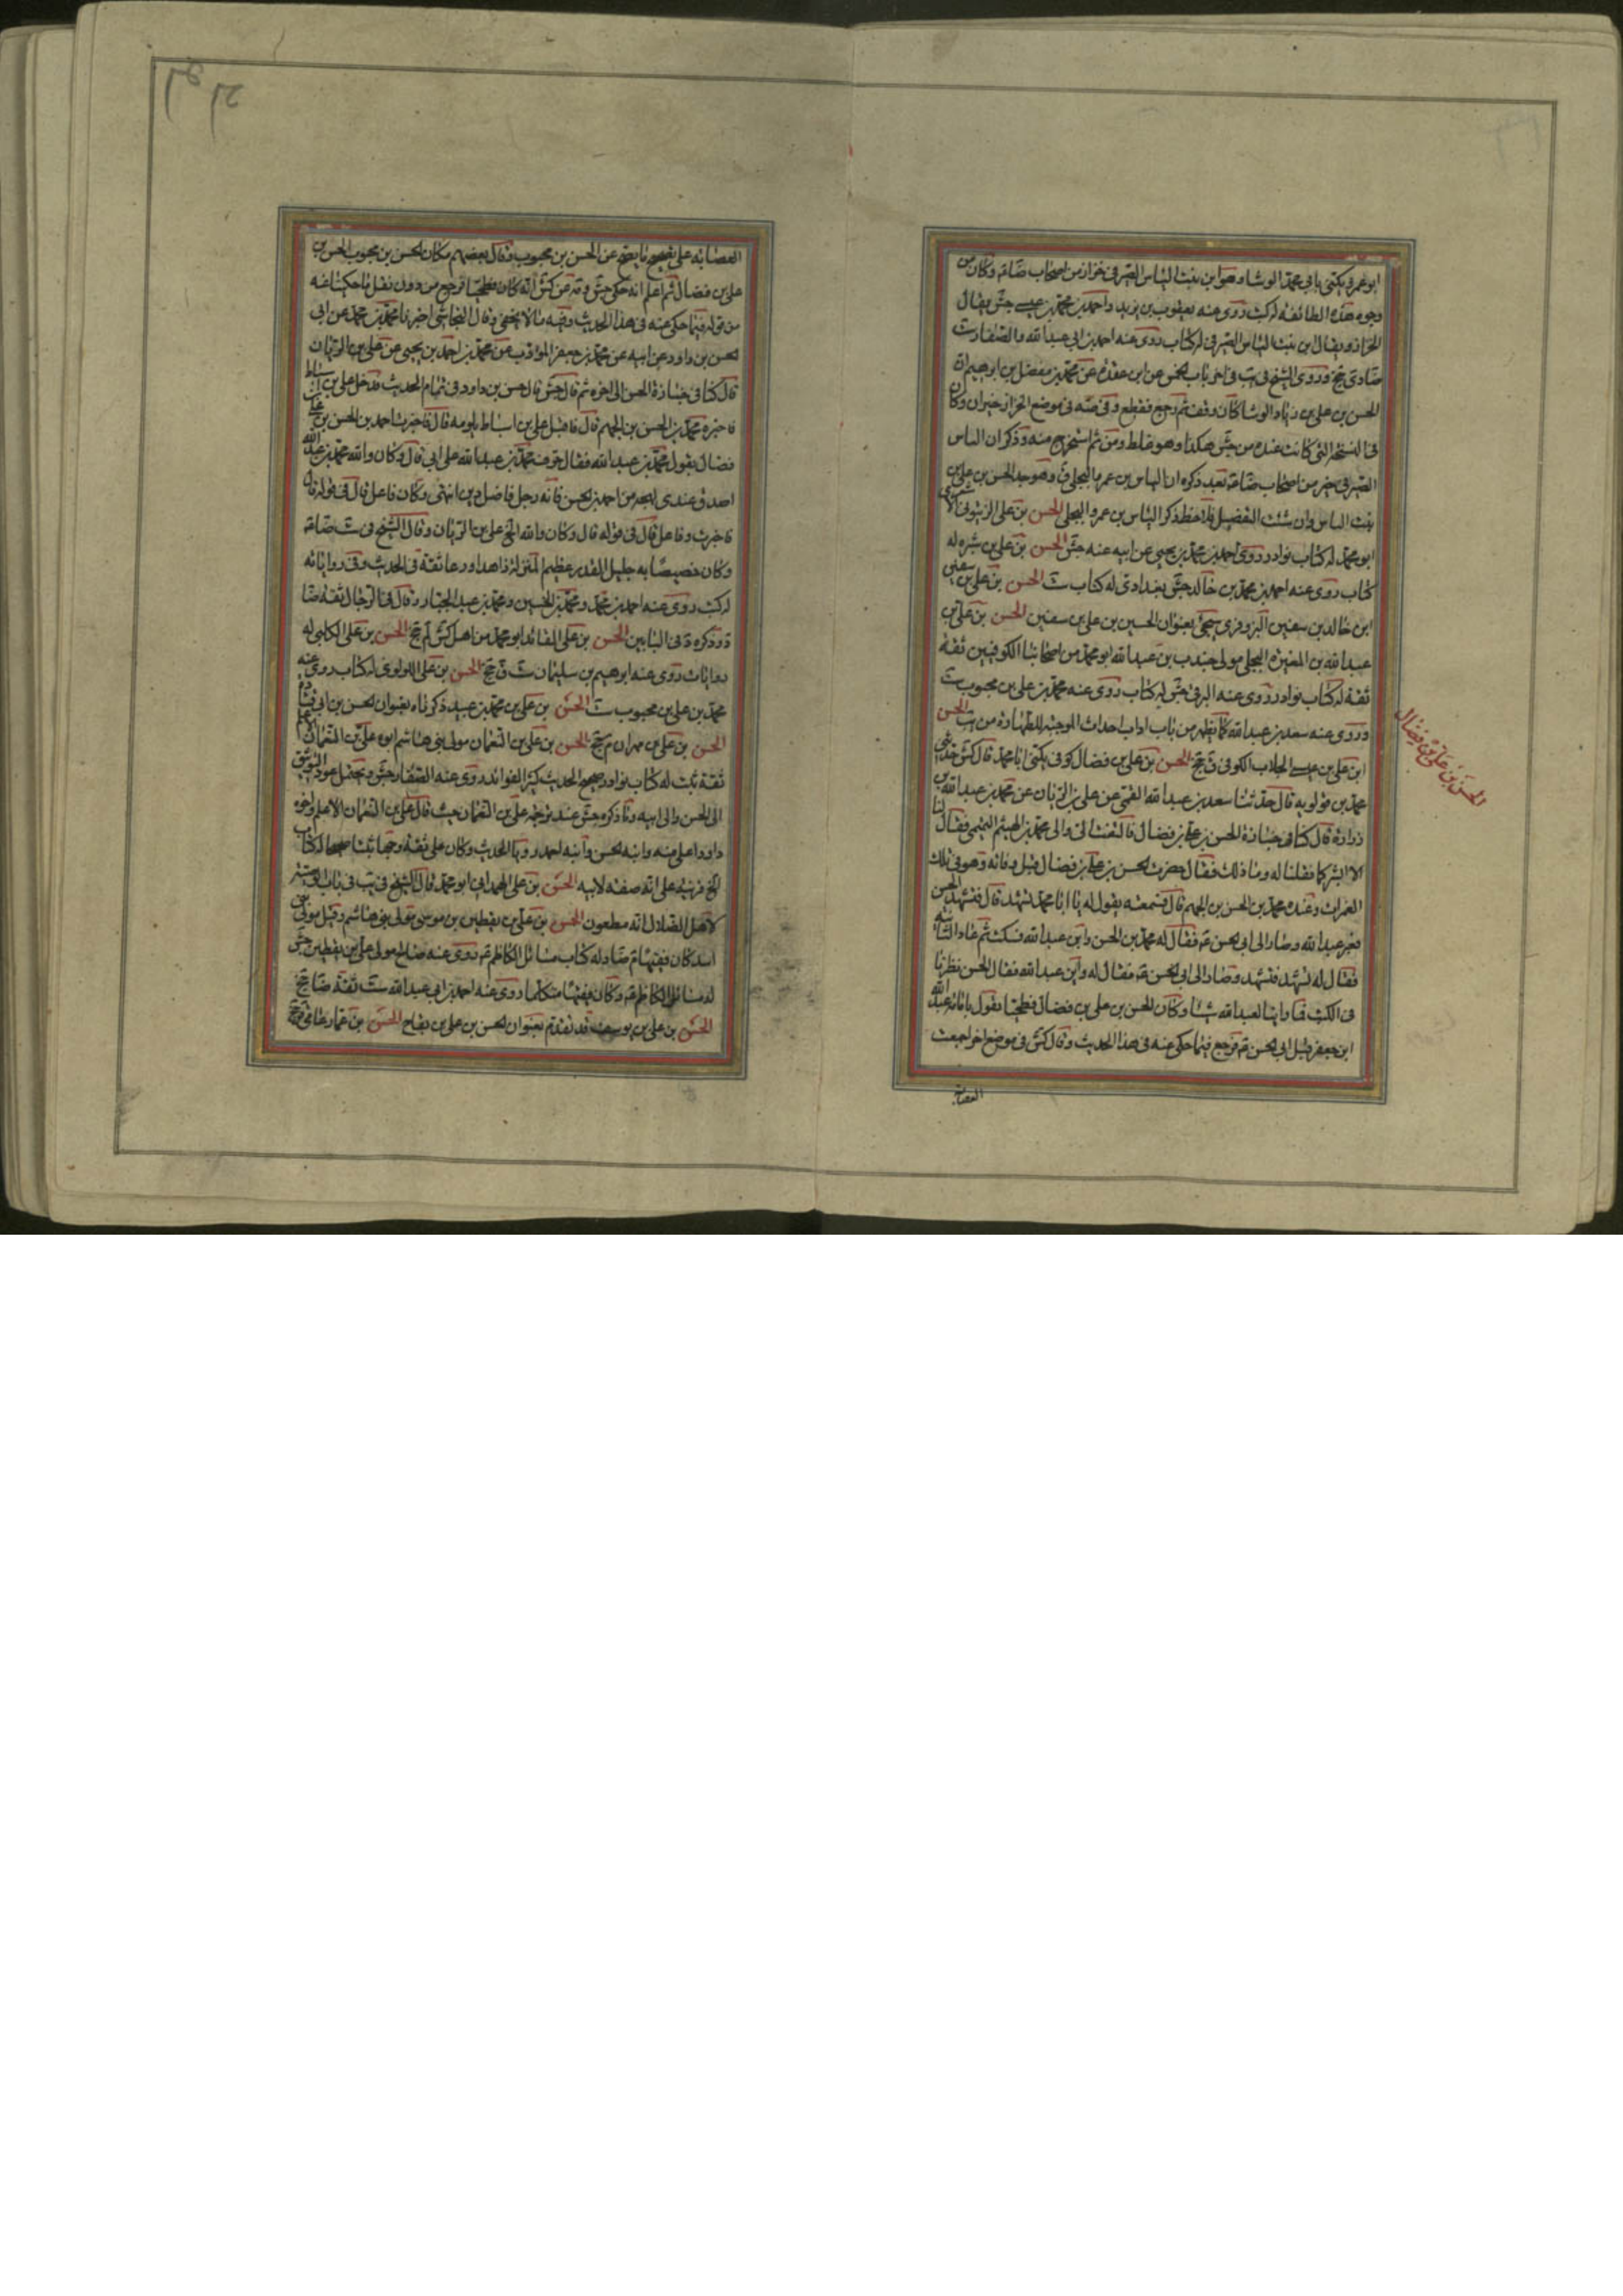 ابو عمرو يكنى بابى محمد الوشاء وهو ابن بنت الياس الصيرفى خزاز من اصحاب ضا وكان من
وجوه هذه الطائفة له كتب روى عنه يعقوب بن يزيد واحمد بن محمد بن عيسى جش يقال
الخزاز ويقال ابن بنت الياس الصيرفى له كتاب روى عنه احمد بن ابى عبدالله والصفار ست
وروى الشيخ فى يب فى اخر باب الخمس عن ابن عقدة عن محمد بن مفضل بن ابرهيم ان
الحسن بن على بن زياد الوشا كان وقف ثم رجع فقطع
فى النسخة التى كانت عنده من جش هكذا وهو غلط ومن ثم استخرج منه وذكر ان الياس
الصيرفى خير من اصحاب ضا بعد ذكره ان الياس بن عمرو البجلى ق وهو جد الحسن بن على بن
بنت الياس وان شئت التفصيل فلاحظ ذكر الياس بن عمرو البجلى الحسن بن على الزيتونى الاشعرى
ابو محمد له كتاب نوادر روى احمد بن محمد بن يحيى عن ابيه عنه جش الحسن بن على بن سبره له
كتاب روى عنه احمد بن محمد بن خالد جش بغدادى له كتاب ست الحسن بن على بن سفين
ابن خالد بن سفين البزوفرى سيجئ بعنوان الحسين بن على بن سفين الحسن بن على بن
عبدالله بن المغيرة البجلى مولى جندب بن عبدالله ابو محمد من اصحابنا الكوفيين ثقة
ثقة له كتاب نوادر روى عنه البرقى جش له كتاب روى عنه محمد بن على بن محبوب ست
وروى عنه سعد بن عبدالله كما يظهر من باب اداب احداث الموجبة للطهارة من يب الحسن
ابن على بن عيسى الجلاب الكوفى ق جخ الحسن بن على بن فضال كوفى يكنى ابا محمد قال كش حدثنى
محمد بن قولويه قال حدثنا سعد بن عبدالله القمى عن على بن الريان عن محمد بن عبدالله بن
زرارة قال كنا فى جنازة الحسن بن على بن فضال فالتفت الى والى محمد بن الهيثم التميمى فقال لنا
الا ابشركما فقلنا له وما ذلك فقال حضرت الحسن بن على بن فضال قبل وفاته وهو فى تلك
الغمرات وعنده محمد بن الحسن بن الجهم قال فسمعته يقول له يا ابا محمد تشهد قال فتشهد الحسن
فعبر عبدالله وصار الى ابى الحسن ع فقال له محمد بن الحسن واين عبدالله فسكت ثم عاد الثانية
فقال له تشهد فتشهد وصار الى ابى الحسن ع فقال له واين عبدالله فقال الحسن نظرنا
فى الكتب فما راينا لعبدالله شيئا وكان الحسن بن على بن فضال فطحيا يقول بامامة عبدالله
ابن جعفر قبل ابى الحسن ع فرجع فيما حكى عنه فى هذا الحديث وقال كش فى موضع اخر اجمعت
العصابة
الحسن بن على بن فضال
العصابة على تصحيح ما يصح عن الحسن بن محبوب وقال بعضهم مكان الحسن بن محبوب الحسن بن
على بن فضال ثم اعلم انه حكى جش وصه عن كش انه كان فطحيا فرجع من دون نقل ما حكيناعنه
من قوله فيما حكى عنه فى هذا الحديث وفيه ما لا يخفى وقال النجاشى اخبرنا محمد بن محمد عن ابى
الحسن بن داود عن ابيه عن محمد بن جعفر المؤدب عن محمد بن احمد بن يحيى عن على بن الريان
قال كنا فى جنازة الحسن الى اخره ثم قال جش قال حسن بن داود فى تمام الحديث فدخل على بن اسباط
فاخبره محمد بن الحسن بن الجهم قال فاقبل على بن اسباط يلومه قال فاخبرت احمد بن الحسن بن على بن
فضال بقول محمد بن عبدالله فقال حرف محمد بن عبدالله على ابى قال وكان والله محمد بن عبدالله
اصدق عندى لهجة من احمد بن الحسن فانه رجل فاضل دين انتهى وكان فاعل قال فى قوله قال
فاخبرت وفاعل قال فى قوله قال وكان والله الخ على بن الريان وقال الشيخ فى ست
وكان خصيصا به جليل القدر عظيم المنزلة زاهدا ورعا ثقة فى الحديث وفى رواياته
له كتب روى عنه احمد بن محمد ومحمد بن الحسين ومحمد بن عبد الجبار وقال فى الرجال ثقة ضا
وذكره د فى البابين الحسن بن على القائد ابو محمد من اهل كش لم جخ الحسن بن على الكلبى له
روايات روى عنه ابرهيم بن سليمان ست ق جخ الحسن بن على اللولوى له كتاب روى عنه
محمد بن على بن محبوب ست الحسن بن على بن محمد بن عبيد ذكرناه بعنوان الحسن بن ابى قتادة
الحسن بن على بن مهران م جخ الحسن بن على بن النعمان مولى بنى هاشم ابوه على بن النعمان الاعلم
ثقة ثبت له كتاب نوادر صحيح الحديث كثير الفوائد روى عنه الصفار جش ويحتمل عود التوثيق
الى الحسن والى ابيه وما ذكره جش عند ترجمة على بن النعمان حيث قال على بن النعمان الاعلم واخوه
داود اعلى منه وابنه الحسن وابنه احمد رويا الحديث وكان على ثقة وجها ثبتا صحيحا له كتاب
الخ قرينة على انه صفة لابيه الحسن بن على الهمدانى ابو محمد قال الشيخ فى يب فى باب الوصية
لاهل الضلال انه مطعون الحسن بن على بن يقطين بن موسى مولى بنى هاشم وقيل مولى بنى
اسد كان فقيها متكلما له كتاب مسائل الكاظم ع روى عنه صالح مولى على بن يقطين جش
له مسائل الكاظم ع وكان فقيها متكلما روى عنه احمد بن ابى عبدالله ست ثقة ضا جخ
الحسن بن على بن يوسف قد تقدم بعنوان الحسن بن على بن بقاح الحسن بن عمار عامى ق جخ